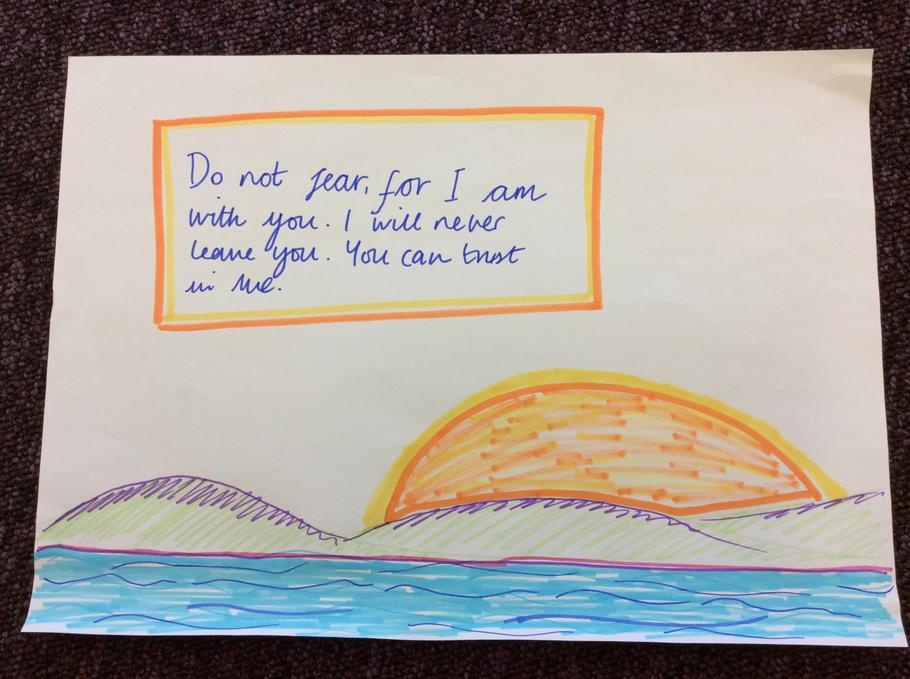 Do not fear, for I am
with you. I will never
leave you. You can trust
in me.